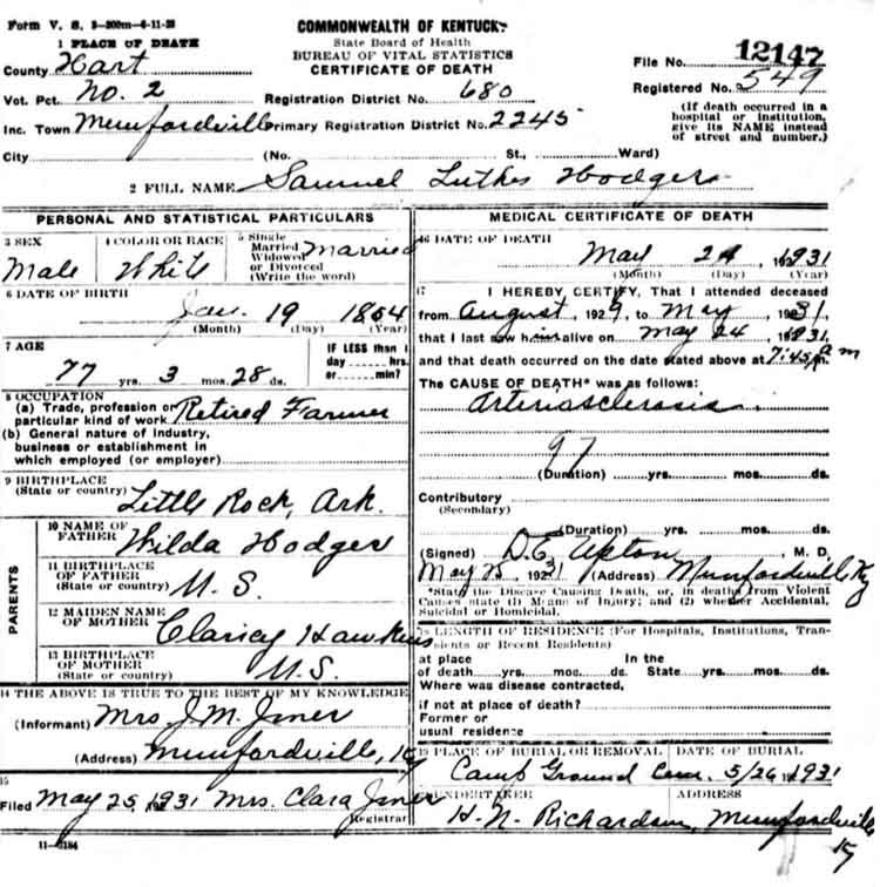 Form V. S. 3-300m-4-11-28
COMMONWEALTH OF KENTUCKY
State Board of Health
BUREAU OF VITAL STATISTICS
CERTIFICATE OF DEATH
File No. 12147
Registered No. 549
(If death occurred in a hospital or institution, give its NAME instead of street and number.)
1 PLACE OF DEATH
County Hart
Vot. Pct. No. 2
Registration District No. 680
Inc. Town Munfordville
Primary Registration District No. 2245
City (No. St., Ward)
2 FULL NAME Samuel Hodges
PERSONAL AND STATISTICAL PARTICULARS
3 SEX
Male
4 COLOR OR RACE
White
5 Single
Married
Widowed
or Divorced
(Write the word)
Married
6 DATE OF BIRTH
Jan. 19 1854
(Month) (Day) (Year)
7 AGE
77 yrs. 3 mos. 28 ds.
IF LESS than 1
day hrs.
or min?
8 OCCUPATION
(a) Trade, profession or
particular kind of work Retired Farmer
(b) General nature of industry,
business or establishment in
which employed (or employer)
9 BIRTHPLACE
(State or country) Little Rock, Ark.
PARENTS
10 NAME OF
FATHER Hodges
11 BIRTHPLACE
OF FATHER
(State or country) U. S.
12 MAIDEN NAME
OF MOTHER Hawkins
13 BIRTHPLACE
OF MOTHER
(State or country) U. S.
14 THE ABOVE IS TRUE TO THE BEST OF MY KNOWLEDGE
(Informant) Mrs J. M.
(Address) Munfordville, Ky
15
Filed May 25, 1931 Mrs. Clara
Registrar
MEDICAL CERTIFICATE OF DEATH
16 DATE OF DEATH
May 24, 1931
(Month) (Day) (Year)
17 I HEREBY CERTIFY, That I attended deceased
from August, 1929, to May, 1931,
that I last saw him alive on May 24, 1931,
and that death occurred on the date stated above at 7:45 a m
The CAUSE OF DEATH* was as follows:
Arteriasclerosis.
97
(Duration) yrs. mos. ds.
Contributory
(Secondary)
(Duration) yrs. mos. ds.
(Signed) D. E. Upton, M. D.
May 25, 1931 (Address) Munfordville Ky
*State the Disease Causing Death, or, in deaths from Violent
Causes state (1) Means of Injury; and (2) whether Accidental,
Suicidal or Homicidal.
18 LENGTH OF RESIDENCE (For Hospitals, Institutions, Transients or Recent Residents)
at place
of death yrs. mos. ds.
In the
State yrs. mos. ds.
Where was disease contracted,
if not at place of death?
Former or
usual residence
19 PLACE OF BURIAL OR REMOVAL
Camp Ground Cem.
DATE OF BURIAL
5/26, 1931
UNDERTAKER
H. N. Richardson,
ADDRESS
Munfordville
Ky
11-3184